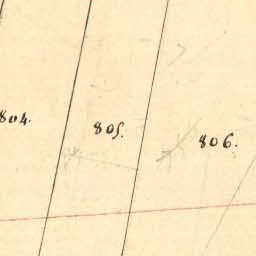 804.
805.
806.